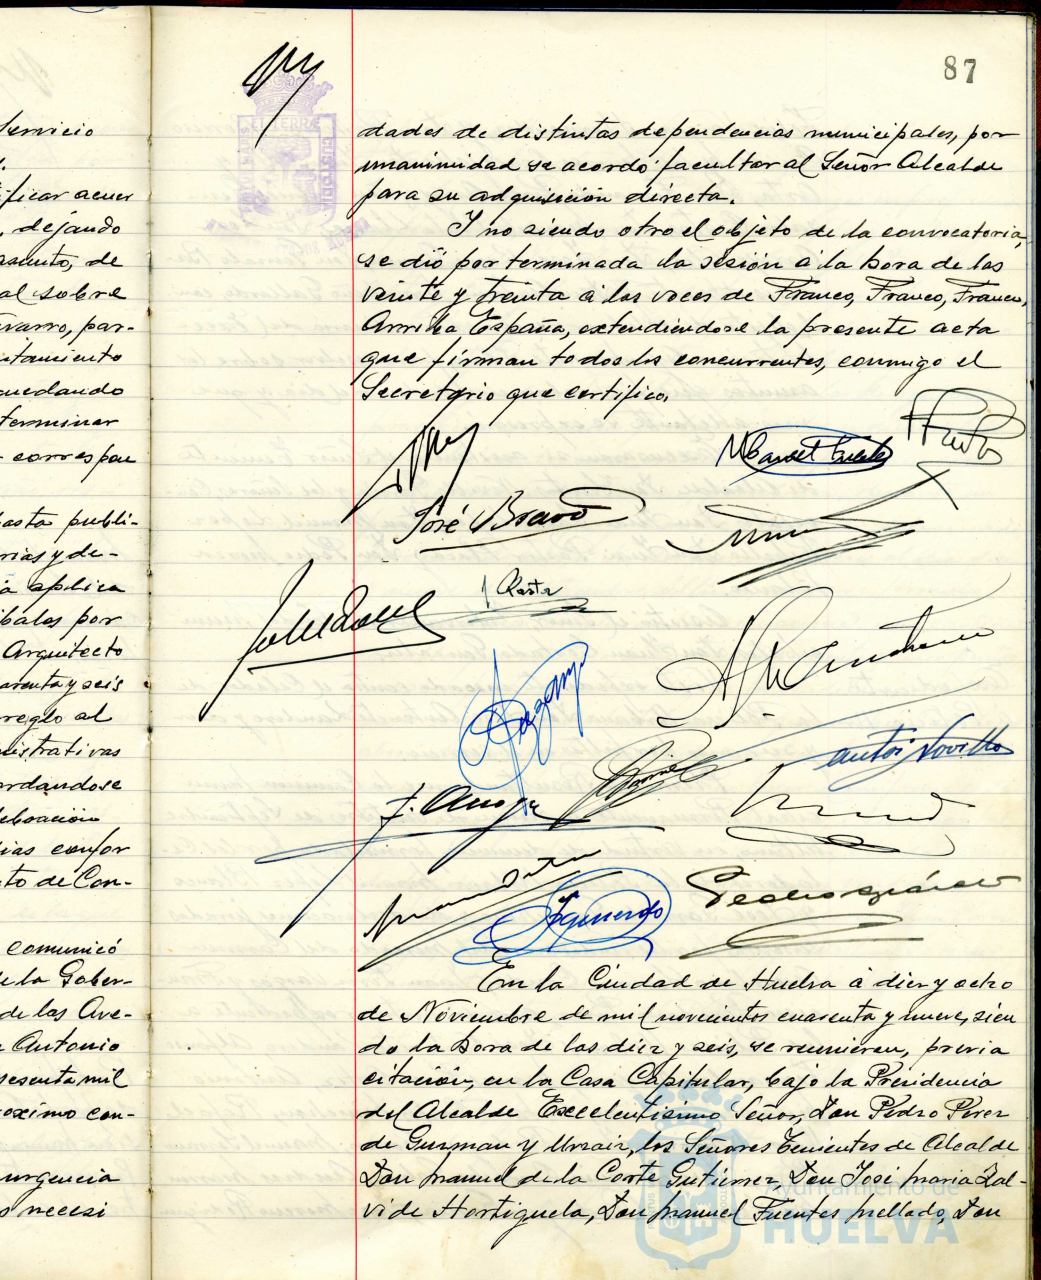 Servicio
ficar acuer
, dejando
asunto, de
al sobre
avarro, par-
ntamiento
quedando
terminar
correspon
basta publi-
rias y de-
aplica
bales por
Arquitecto
arenta y seis
reglo al
nistrativas
ordandose
elebración
ias confor
to de Con-
comunicó
de la Gober-
de las Ave-
Antonio
sesenta mil
roximo con-
urgencia
o necesi
87
dades de distintas dependencias municipales, por
unanimidad se acordó facultar al Señor Alcalde
para su adquisición directa.
Y no siendo otro el objeto de la convocatoria,
se dió por terminada la sesión a la hora de las
veinte y treinta a las voces de Franco, Franco, Franco,
Arriba España, extendiendose la presente acta
que firman todos los concurrentes, conmigo el
Secretario que certifico.
Manuel Fuentes
José Bravo
Antº Novillo
Izquierdo
En la Ciudad de Huelva á diez y ocho
de Noviembre de mil novecientos cuarenta y nueve, sien
do la hora de las diez y seis, se reunieron, previa
citación, en la Casa Capitular, bajo la Presidencia
del Alcalde Excelentisimo Señor, Don Pedro Perez
de Guzman y Urzaiz, los Señores Tenientes de Alcalde
Don Manuel de la Corte Gutierrez, Don José Maria Zal-
vide Hortiguela, Don Manuel Fuentes Mellado, Don
Ayuntamiento de
HUELVA